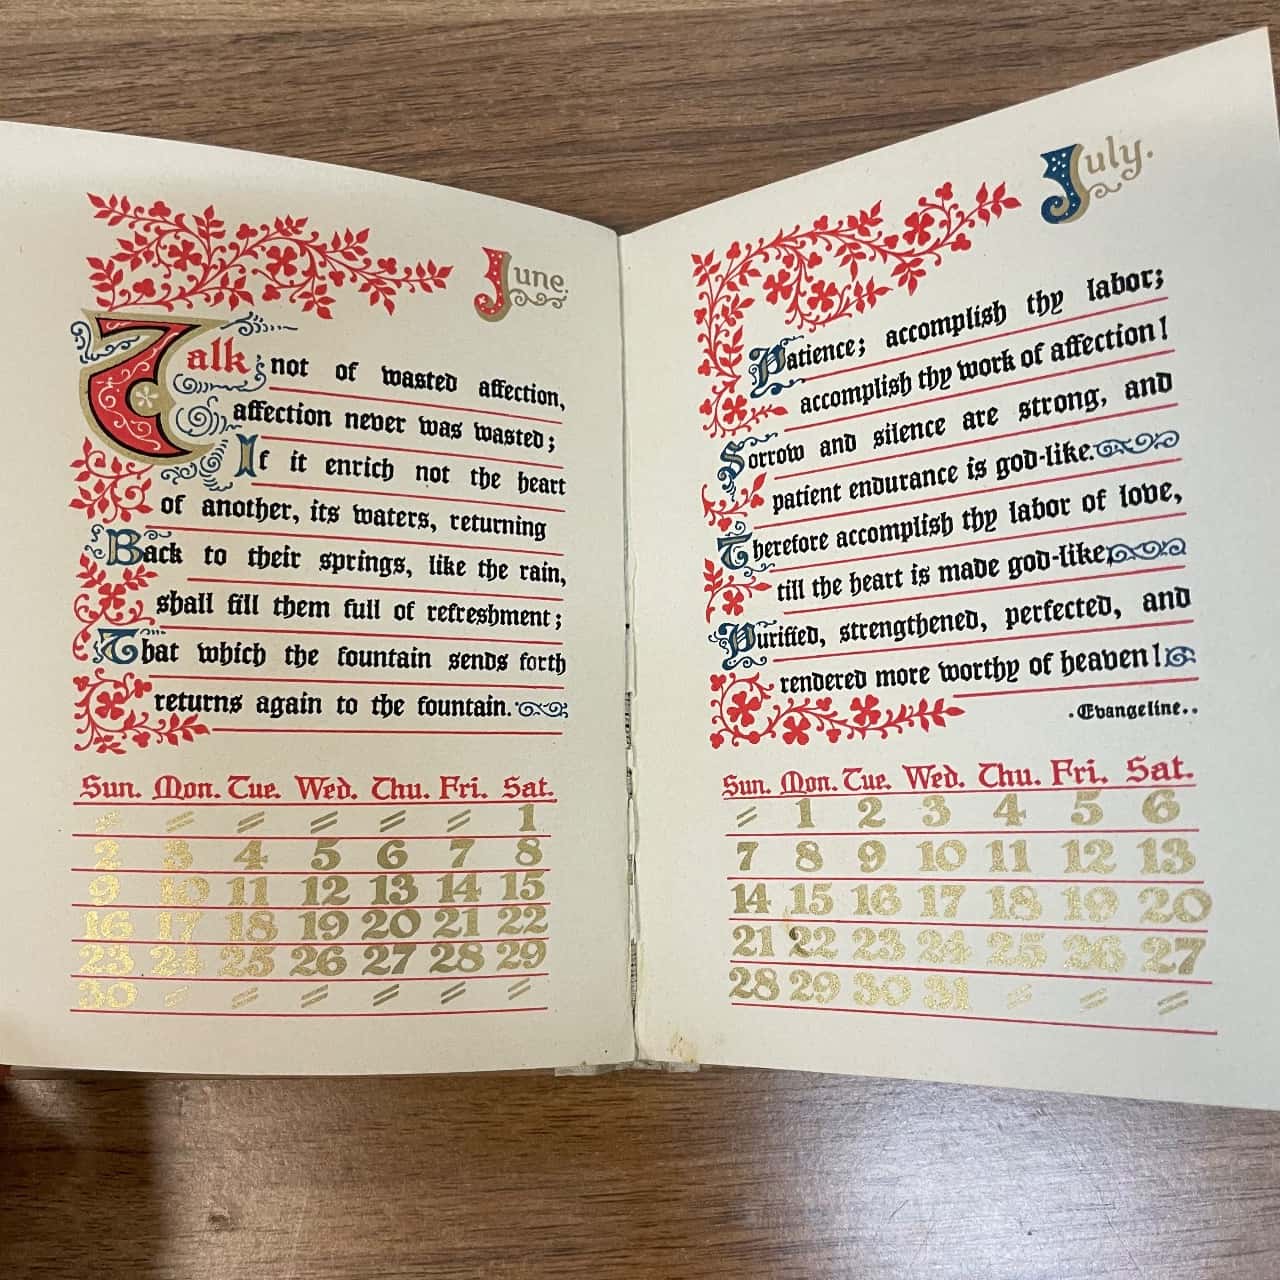 June.
Talk not of wasted affection,
affection never was wasted;
If it enrich not the heart
of another, its waters, returning
Back to their springs, like the rain,
shall fill them full of refreshment;
That which the fountain sends forth
returns again to the fountain.
Sun. Mon. Tue. Wed. Thu. Fri. Sat.
1
2 3 4 5 6 7 8
9 10 11 12 13 14 15
16 17 18 19 20 21 22
23 24 25 26 27 28 29
30
July.
Patience; accomplish thy labor;
accomplish thy work of affection!
Sorrow and silence are strong, and
patient endurance is god-like.
Therefore accomplish thy labor of love,
till the heart is made god-like,
Purified, strengthened, perfected, and
rendered more worthy of heaven!
·Evangeline..
Sun. Mon. Tue. Wed. Thu. Fri. Sat.
1 2 3 4 5 6
7 8 9 10 11 12 13
14 15 16 17 18 19 20
21 22 23 24 25 26 27
28 29 30 31